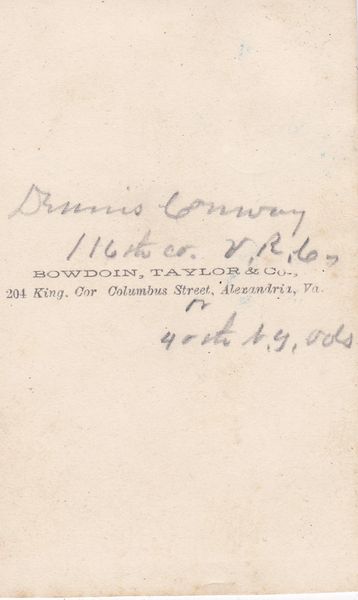 Dennis Conway
116th co. V. R. Co,
BOWDOIN, TAYLOR & Co.,
204 King. Cor Columbus Street, Alexandria, Va.
or
40th N.Y. Vols